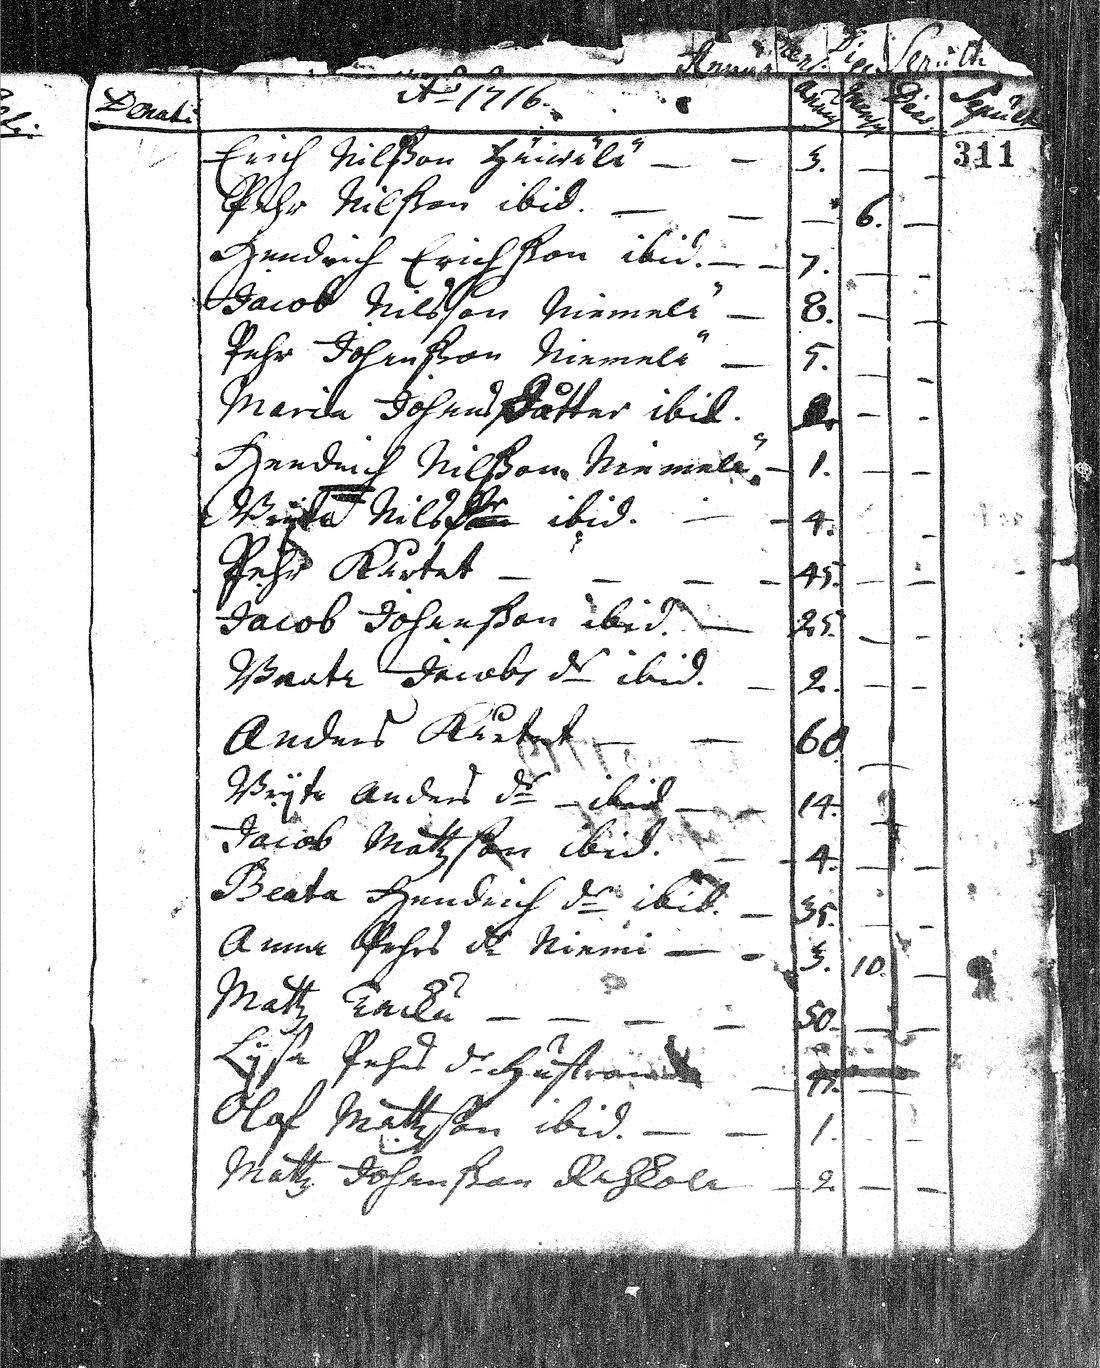 Donati Ao 1716. Annos Mens Dies Sepult
Erich Nilsson 3. — — 311
Pehr Nilsson ibid. — — — 6. —
Hendrich Erichsson ibid. — — 7. — —
Jacob Nilsson Niemelä — 8. — —
Pehr Johansson Niemelä — 5. — —
Maria Johans Dåtter ibid. — —
Hendrich Nilsson Niemelä — 1. — —
Nils ibid. — — 4. —
Pehr Kurtet — — — — 45. — —
Jacob Johansson ibid. — 25. — —
Beata Jacobs dr ibid. — 2. — —
Anders Kurtet — — 60 —
Bryta Anders dr — ibid — — 14. —
Jacob Mattzson ibid. — — 4. — —
Beata Hendrich dr ibid. — 35. — —
Anna Pehrs dr Niemi — — 3. 10. —
Mattz — — — — 50. — —
Lysa Pehrs dr Hustrun —
Olof Mattzson ibid. — — 1. — —
Mattz Johansson — 2 — —